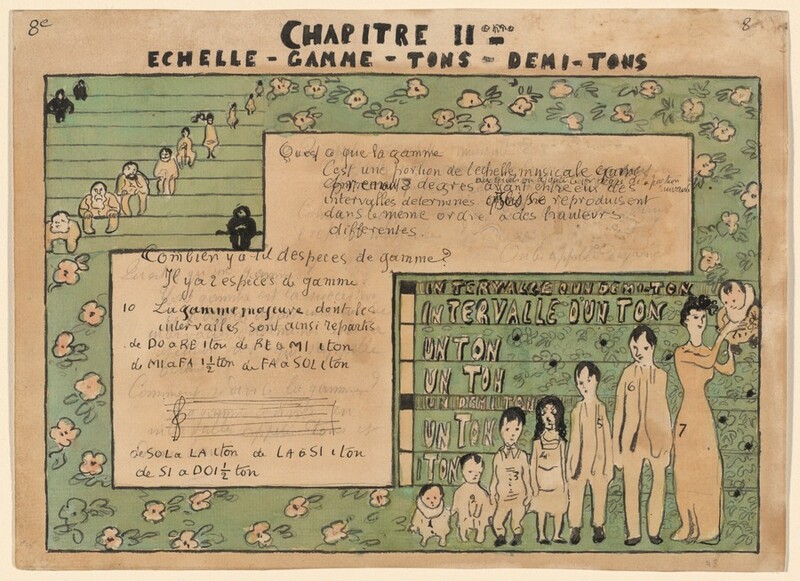 8e
8
CHAPITRE II ème
ECHELLE - GAMME - TONS - DEMI-TONS
Quest ce que la gamme
C'est une portion de l'echelle musicale
comprenant 8 degres ayant entre eux des
intervalles determinés se reproduisent
dans le même ordre a des hauteurs
differentes.
Combien y a til despeces de gamme?
Il y a 2 espèces de gamme.
1o La gamme majeure dont les
intervalles sont ainsi repartis
de DO a RE 1 ton de RE a MI 1 ton
de MI a FA 1/2 ton de FA a SOL 1 ton
de SOL a LA 1 ton de LA a SI 1 ton
de SI a DO 1/2 ton
INTERVALLE D'UN DEMI-TON
INTERVALLE D'UN TON
UN TON
UN TON
UN DEMI TON
UN TON
1 TON
2
3
4
5
6
7